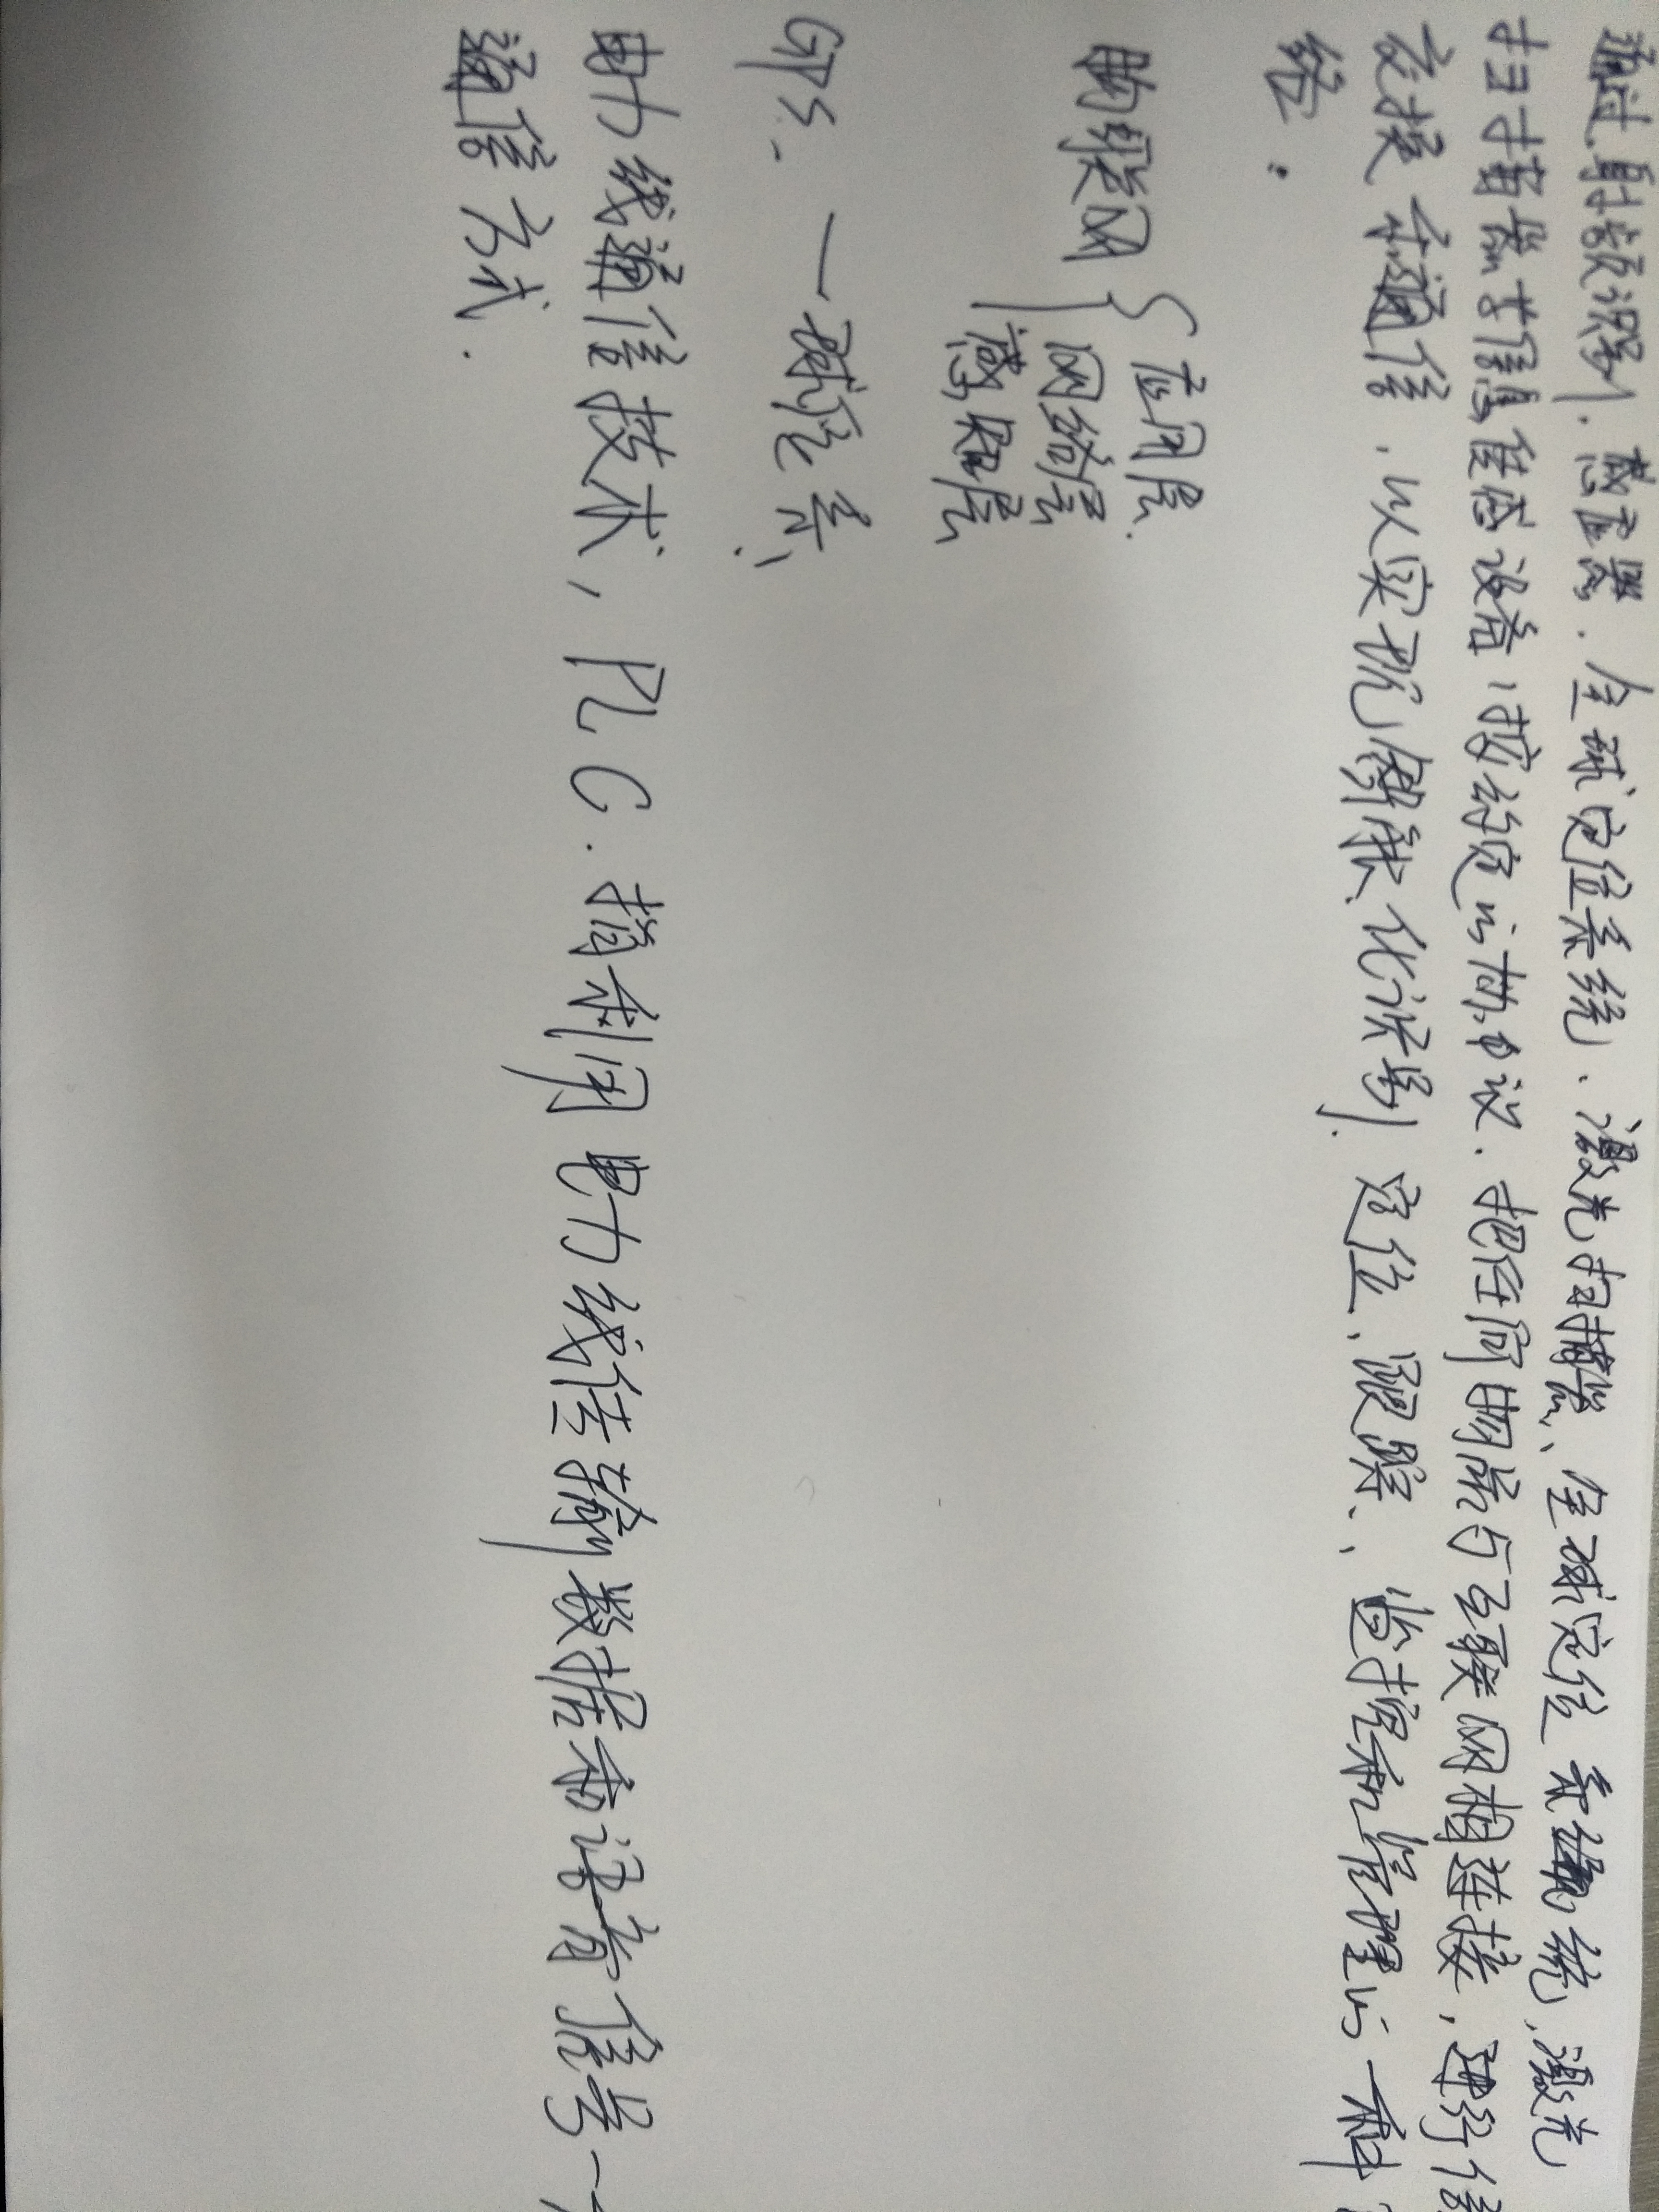 通过射频识别.感应器.全球定位系统、激光扫描器、全球定位系统,激光
扫描器等信息传感设备,按约定的协议.把任何物品与互联网相连接,进行信
息交换和通信,以实现智能化识别.定位、跟踪、监控和管理的一种
络.
物联网{应用层.
网络层
感知层
GPS.一球定系、
电力线通信技术,PLC.指利用电力线传输数据和话音信号一
通信方式.